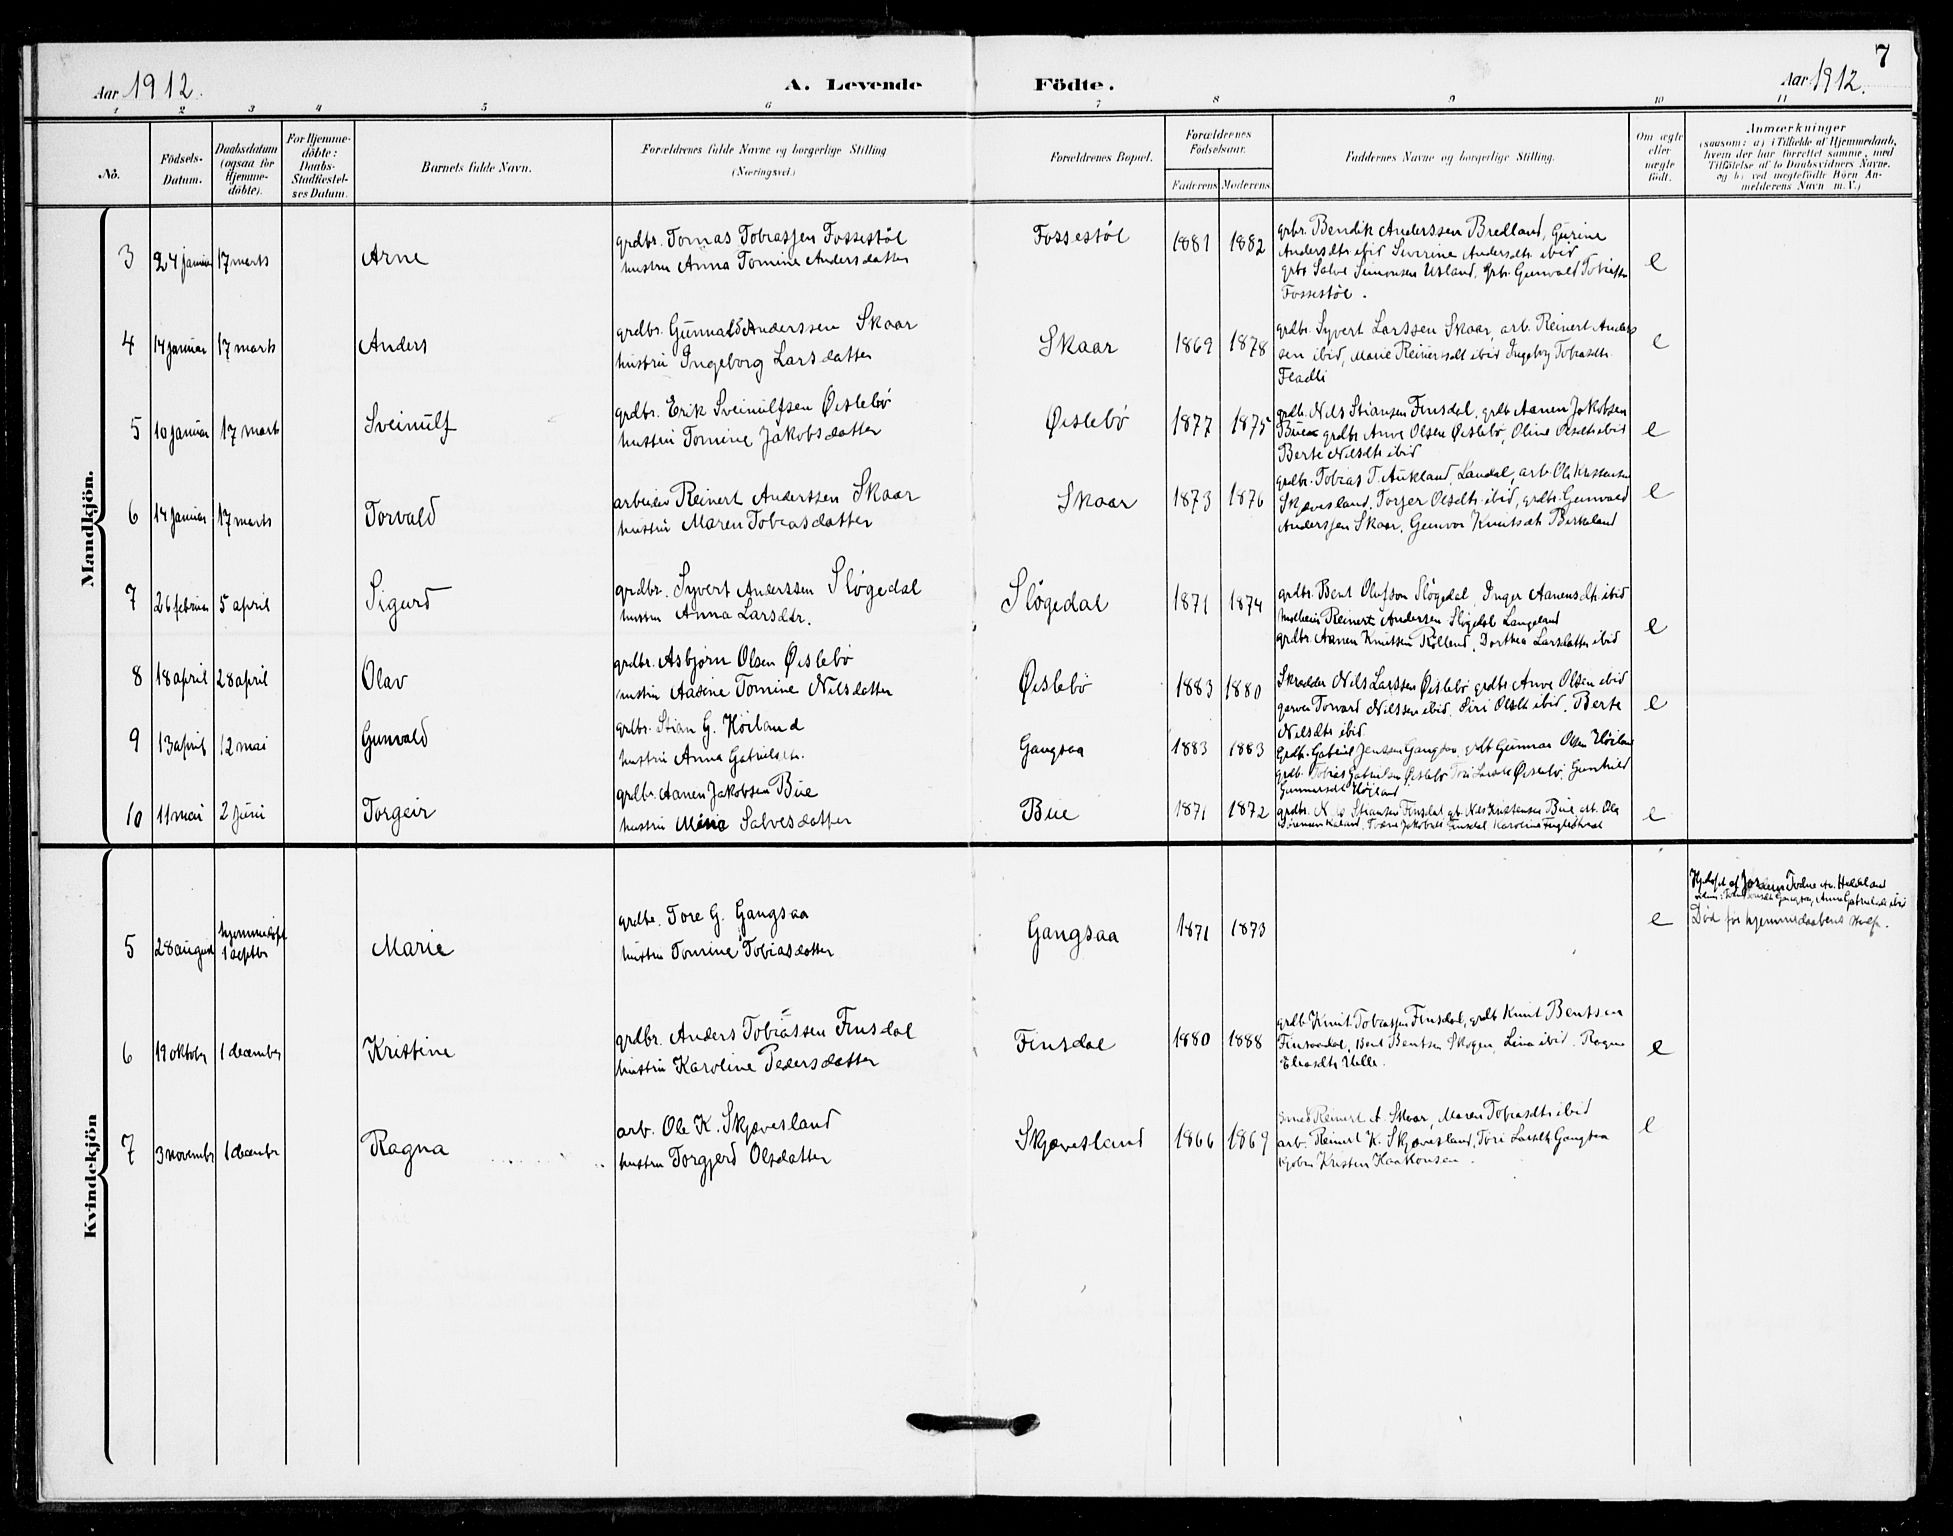 7
Aar 1912.
A. Levende Födte.
Aar 1912.
1 2 3 4 5 6 7 8 9 10 11
No.
Födsels-Datum.
Daabsdatum (ogsaa for Hjemme-döbte).
For Hjemme-döbte: Daabs-Stadfæstel-ses Datum.
Barnets fulde Navn.
Forældrenes fulde Navne og borgerlige Stilling (Næringsvei.)
Forældrenes Bopæl.
Forældrenes Födselsaar.
Faderens Moderens
Faddernes Navne og borgerlige Stilling.
Om ægte eller uægte födt.
Anmærkninger
(saasom: a) i Tilfælde af Hjemmedaab,
hvem der har forrettet samme, med
Tilföielse af to Daabsvidners Navne,
og b) ved uægtefödte Börn An-
melderens Navn m. V.)
Mandkjön.
3 24 januar 17 marts Arne
grdbr. Tomas Tobiassen Fossestøl
hustru Anna Tomine Andersdatter
Fossestøl 1881 1882
grbr. Bendik Anderssen Bredland, Gurine
Andersdtr ibid Severine Andersdtr ibid
grbr Salve Simonsen Usland, grbr. Gunvald Tobiassen
Fossestøl.
e
4 14 januar 17 marts Anders
grdbr. Gunnald Anderssen Skaar
hustru Ingeborg Larsdatter
Skaar 1869 1878
grdbr. Syvert Larssen Skaar, arb. Reinert Anders
sen ibid, Marie Reinertsdt ibid Ingeborg Tobiasdtr.
e
5 10 januar 17 marts Sveinulf
grdbr. Erik Sveinulfsen Øislebø
hustru Tomine Jakobsdatter
Øislebø 1877 1875
grdb. Nils Stiansen Finsdal, grdb Aanen Jakobsen
Bue grdbr Anve Olsen Øislebø, Oline Olsdtr ibid
Berte Nilsdtr ibid
e
6 14 januar 17 marts Torvald
arbeider Reinert Anderssen Skaar
hustru Maren Tobiasdatter
Skaar 1873 1876
grdbr. Tobias T. Aukland, Laudal, arb. Ole Kristensen
Skjævesland, Torjer Olsdtr ibid, grdbr. Gunvald
Anderssen Skaar, Gunvor Knutsdtr Birkeland
e
7 26 februar 5 april Sigurd
grdbr. Syvert Anderssen Sløgedal
hustru Anna Larsdtr.
Sløgedal 1871 1874
grdbr. Bent Olufson Sløgedal, Inger Aanensdtr ibid
Reinert Andersen Sløgedal Langeland
grdbr. Aanen Knutsen Rølland, Dorthea Larsdatter ibid
e
8 18 april 28 april Olav
grdbr. Asbjørn Olsen Øislebø
hustru Aasine Tomine Nilsdatter
Øislebø 1883 1880
Skrædder Nils Larssen Øislebø grdbr Anve Olsen ibid
garver Torvard Nilssen ibid. Siri Olsdt ibid. Berte
Nilsdtr ibid
e
9 13 april 12 mai Gunvald
grdbr. Stian G. Høiland
hustru Anna Gabrielsdtr.
Gangsaa 1883 1883
Grdb. Gabriel Jenssen Gangsaa, grdb Gunnar Olsen Høiland
grdb. Tobias Gabrielsen Øislebø Tori Øislebø, Gunhild
Gunnarsdt Høiland
10 11 mai 2 juni Torgeir
grdbr. Aanen Jakobsen Bue
hustru Maria Salvesdatter
Bue 1871 1872
grdbr. Nils Stiansen Finsdal grb. Nils Kristensen Bue, arb. Ola
e
Kvindekjön
5 28 august hjemmedøpt 1 septbr Marie
grdbr. Tore G. Gangsaa
hustru Tomine Tobiasdatter
Gangsaa 1871 1873
e
Død før hjemmedaabens stadf.
6 19 oktober 1 december Kristine
grdbr. Anders Tobiassen Finsdal
hustru Karoline Pedersdatter
Finsdal 1880 1888
grdb Knut Tobiassen Finsdal, grdb Knut Bentsen
Finsaadal, Bent Bentsen Skogen, Lina ibid. Ragna
Eliasdtr Valle.
e
7 3 november 1 decembr Ragna
arb. Ole K. Skjævesland
hustru Torgjerd Olsdatter
Skjævesland 1866 1869
smed Reinert A. Skaar, Maren Tobiasdtr ibid
arb. Reinert K. Skjævesland, Tori Larsdt. Gangsaa
Kristen Haakonsen.
e